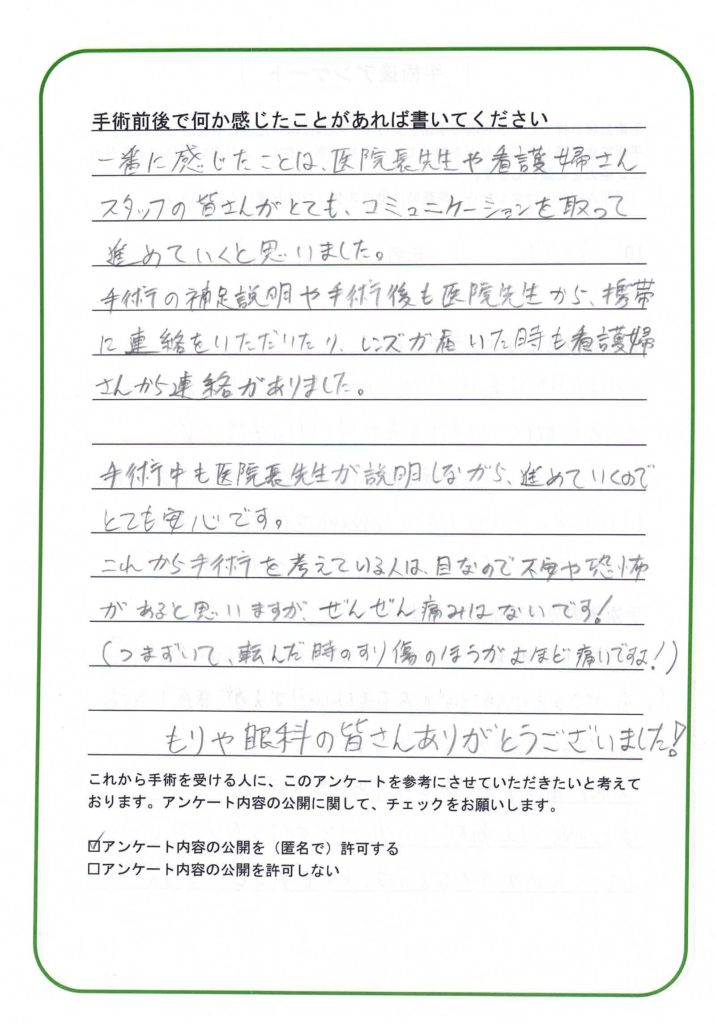 手術前後で何か感じたことがあれば書いてください
一番に感じたことは、医院長先生や看護婦さん
スタッフの皆さんがとても、コミュニケーションを取って
進めていくと思いました。
手術の補足説明や手術後も医院先生から、携帯
に連絡をいただいたり、レンズが届いた時も看護婦
さんから連絡がありました。
手術中も医院長先生が説明しながら、進めていくので
とても安心です。
これから手術を考えている人は、目なので不安や恐怖
があると思いますが、ぜんぜん痛みはないです!
(つまずいて、転んだ時のすり傷のほうがよほど痛いですね!)
もりや眼科の皆さんありがとうございました!
これから手術を受ける人に、このアンケートを参考にさせていただきたいと考えて
おります。アンケート内容の公開に関して、チェックをお願いします。
☑アンケート内容の公開を(匿名で)許可する
□アンケート内容の公開を許可しない